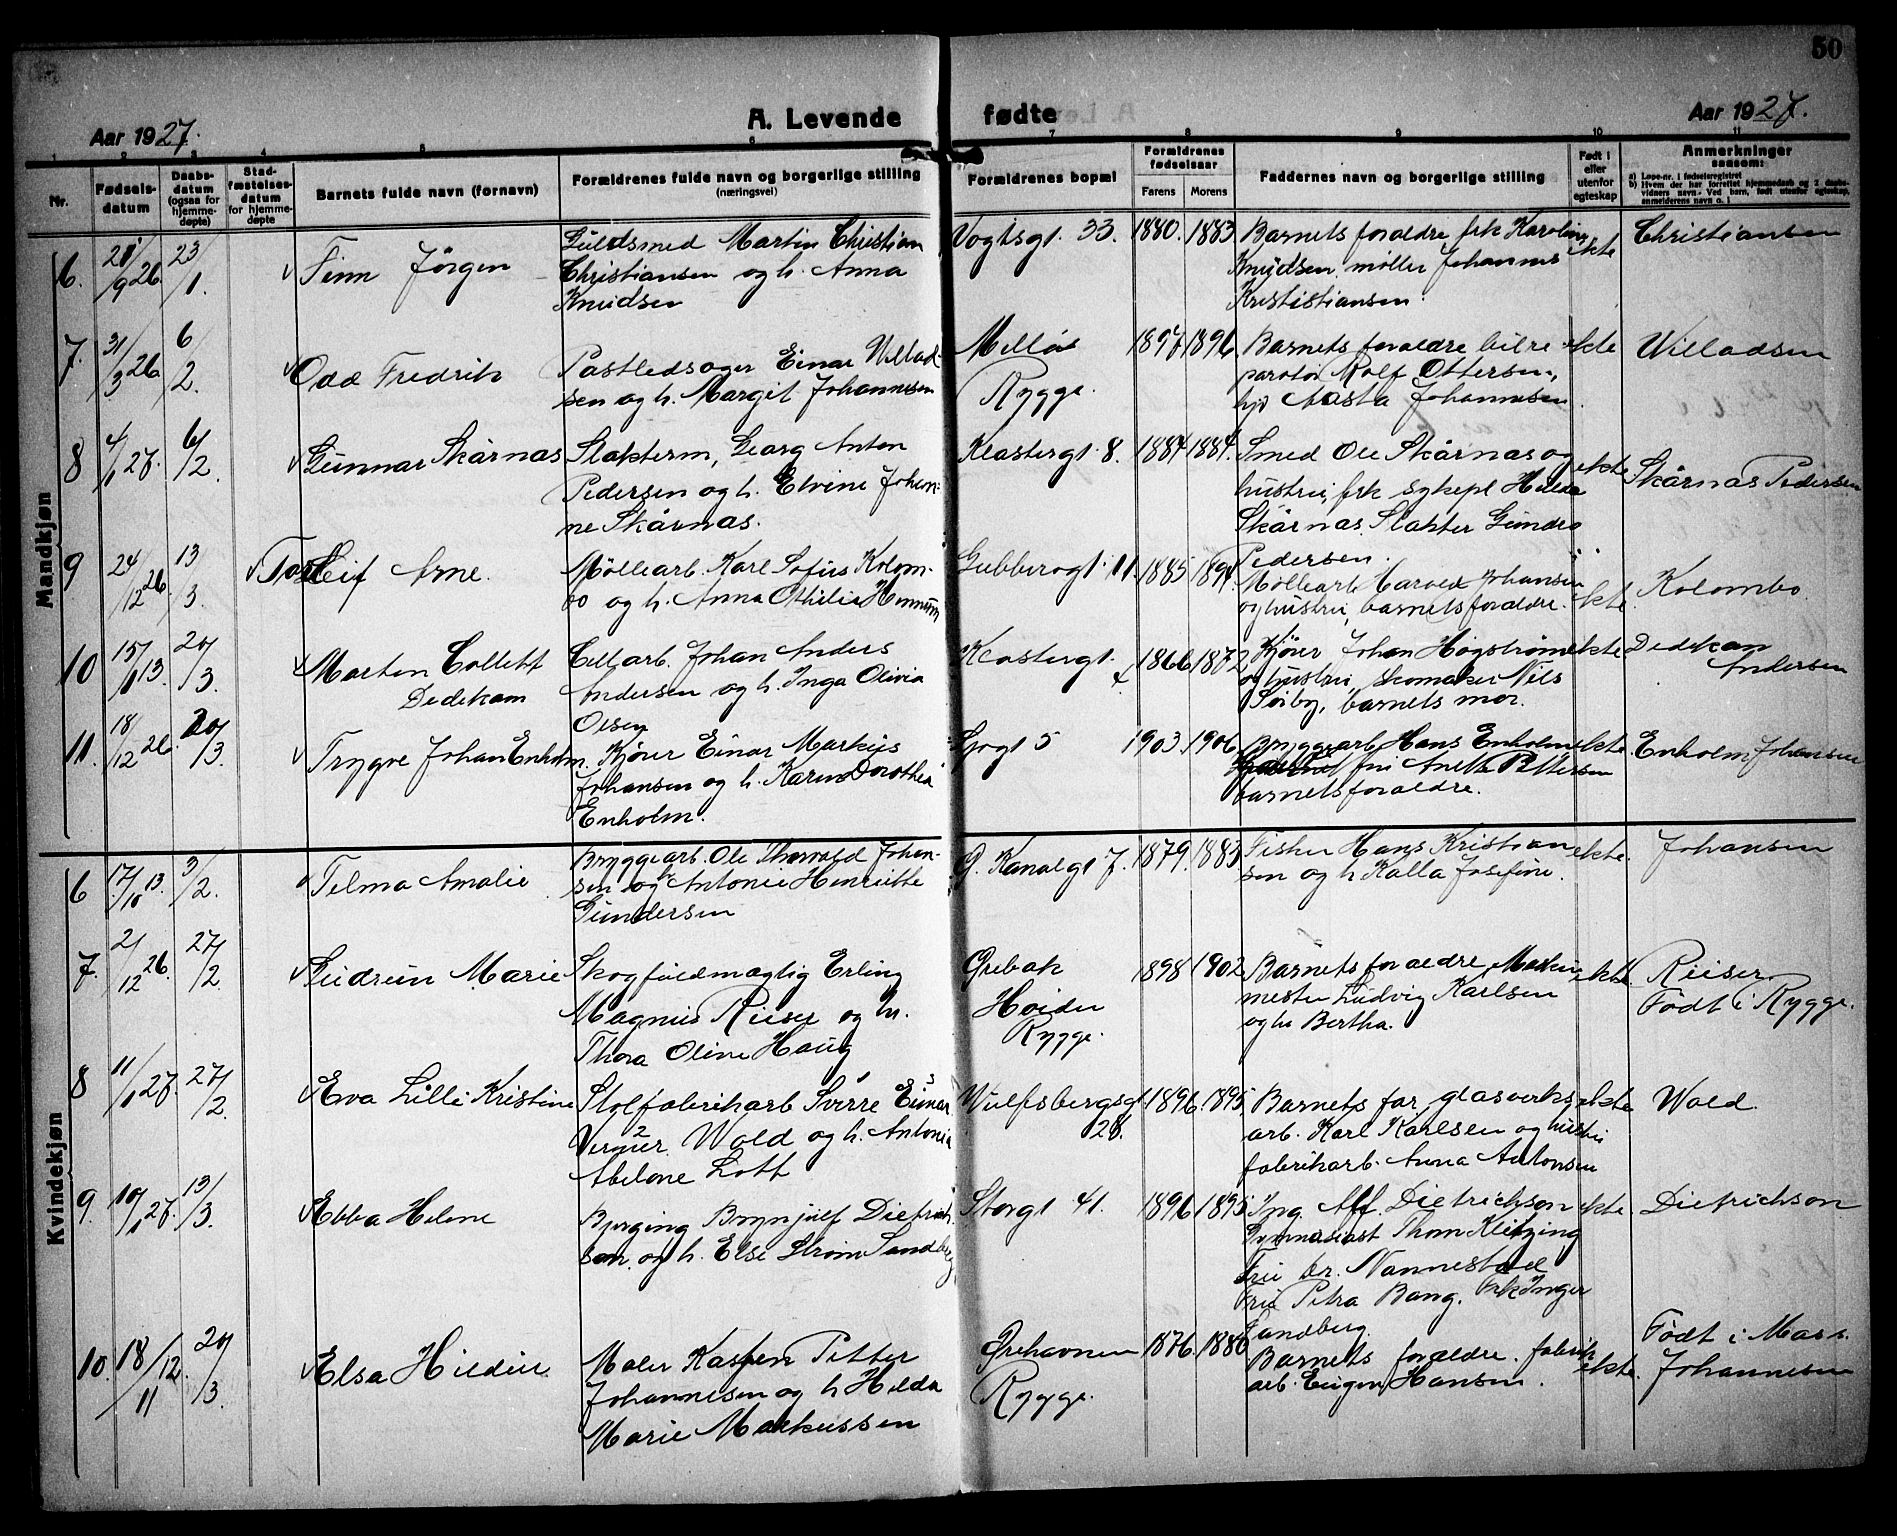 50
Aar 1927.
A. Levende fødte
Aar 1927.
1 2 3 4 5 6 7 8 9 10 11
Nr.
Fødsels-
datum
Daabs-
datum
(ogsaa for
hjemme-
døpte)
Stad-
fæstelses-
datum
for hjemme-
døpte
Barnets fulde navn (fornavn)
Forældrenes fulde navn og borgerlige stilling
(næringsvei)
Forældrenes bopæl
Forældrenes
fødselsaar
Farens Morens
Faddernes navn og borgerlige stilling
Født i
eller
utenfor
egteskap
Anmerkninger
saasom:
a) Løpe-nr. i fødselsregistret
b) Hvem der har forrettet hjemmedaab og 2 daabs-
vidners navn. Ved barn, født utenfor egteskap,
anmelderens navn o. l.
Mandkjøn
6. /9 26. 23/1. Finn Jörgen
Guldsmed Martin Christian
Christiansen og h. Anna
Knudsen
Vogtsgt. 33. 1880. 1883
Barnets foraeldre frk Karoline
Knudsen, møller Johannes
Krististiansen.
ekte
Christiansen
7. 31/3 26 6/2. Odd Fredrik
Postledsager Einar Willad-
sen og h. Margit Johannesen
Melløs
Rygge.
1897 1896
Barnets foraeldre bilre
paratør Rolf Ottersen,
hjv Aasta Johannesen
ekte
Willadsen
8 4/1 27. 6/2. Gunnar Skårnas
Slakterm, Georg Anton
Pedersen og h. Elvine Johan-
ne Skårnas.
Klostergt. 8. 1884 1884.
Smed Ole Skårnas og
hustru, frk sykepl Hilda
Skårnas, Slakter Gundro
Pedersen.
ekte
Skårnas Pedersen
9 24/12 26 13/3. Torleif Arne.
Møllearb. Karl Sofus Kolom-
bo og h. Anna Othilie Hennum
Gubberogt. 11. 1885 1894.
Møllearb. Harald Johansen
og hustru, barnets foraeldre.
ekte.
Kolombo.
10 15/1 13. 20/3. Morten Collett
Dedekam
Cellarb. Johan Anders
Andersen og h. Inga Olivia
Olsen
Klostergt. 1866 1872
Kjører Johan Høgstrøm
og hustru, skomaker Nils
Søiby, barnets mor.
ekte
Dedekam
Andersen
11. 18/12 26. 20/3 Trygve Johan Enholm.
Kjører Einar Markus
Johansen og h. Karen Dorothea
Enholm.
5 1903. 1906
Bryggearb Hans Enholm
fru Anette Pettersen
barnets foraeldre.
ekte
Enholm Johansen
Kvindekjøn
6 17/10 13. 3/2. Telma Amalie
Bryggearb. Ole Thorvald Johan-
sen og h Antonie Henriette
Gundersen
G. Kanalgt 7. 1879. 1883
Fisker Hans Kristian
sen og h Kalla Josefine.
ekte.
Johansen
7. 2/12 26. 27/2. Gudrun Marie
Skogfuldmægtig Erling
Magnus Rieser og h.
Thora Oline Haug
Grebak
Høiden
Rygge.
1898 1902
Barnets foraeldre, Maskin
mester Ludvig Karlsen
og h. Bertha.
ekte
Rieser.
Født i Rygge.
8 11/1 27. 27/2. Eva Lilli Kristine
Stolfabrikarb Sverre Einar
Verner Wold og h. Antonie
Abelone Lott
Wulfsbergsgt
28.
1896. 1895
Barnets far, glasverks
arb. Karl Karlsen og hustru
fabrikarb. Anna Antonsen
ekte
Wold.
9. 10/1 27. 13/3. Ebba Helene
Brynjulf Dietrich-
son. og h. Else Strøm Sandberg
Storgt 41. 1896 1895
Ing. Alf. Dietrichson
Gymnasiast Thom Klitzing
Fru dr. Nannestad
Fru Petra Bang. Frk Inger
Sandberg.
ekte.
Dietrichson
10. 18/11 12. 20/3. Elsa Hildur
Maler Kasper Petter
Johannesen og h Hilda
Marie Markussen
Ørehavnen
Rygge.
1876. 1886
Barnets foraeldre. fabrik
arb. Eugen Hansen.
ekte.
Født i Moss.
Johannesen